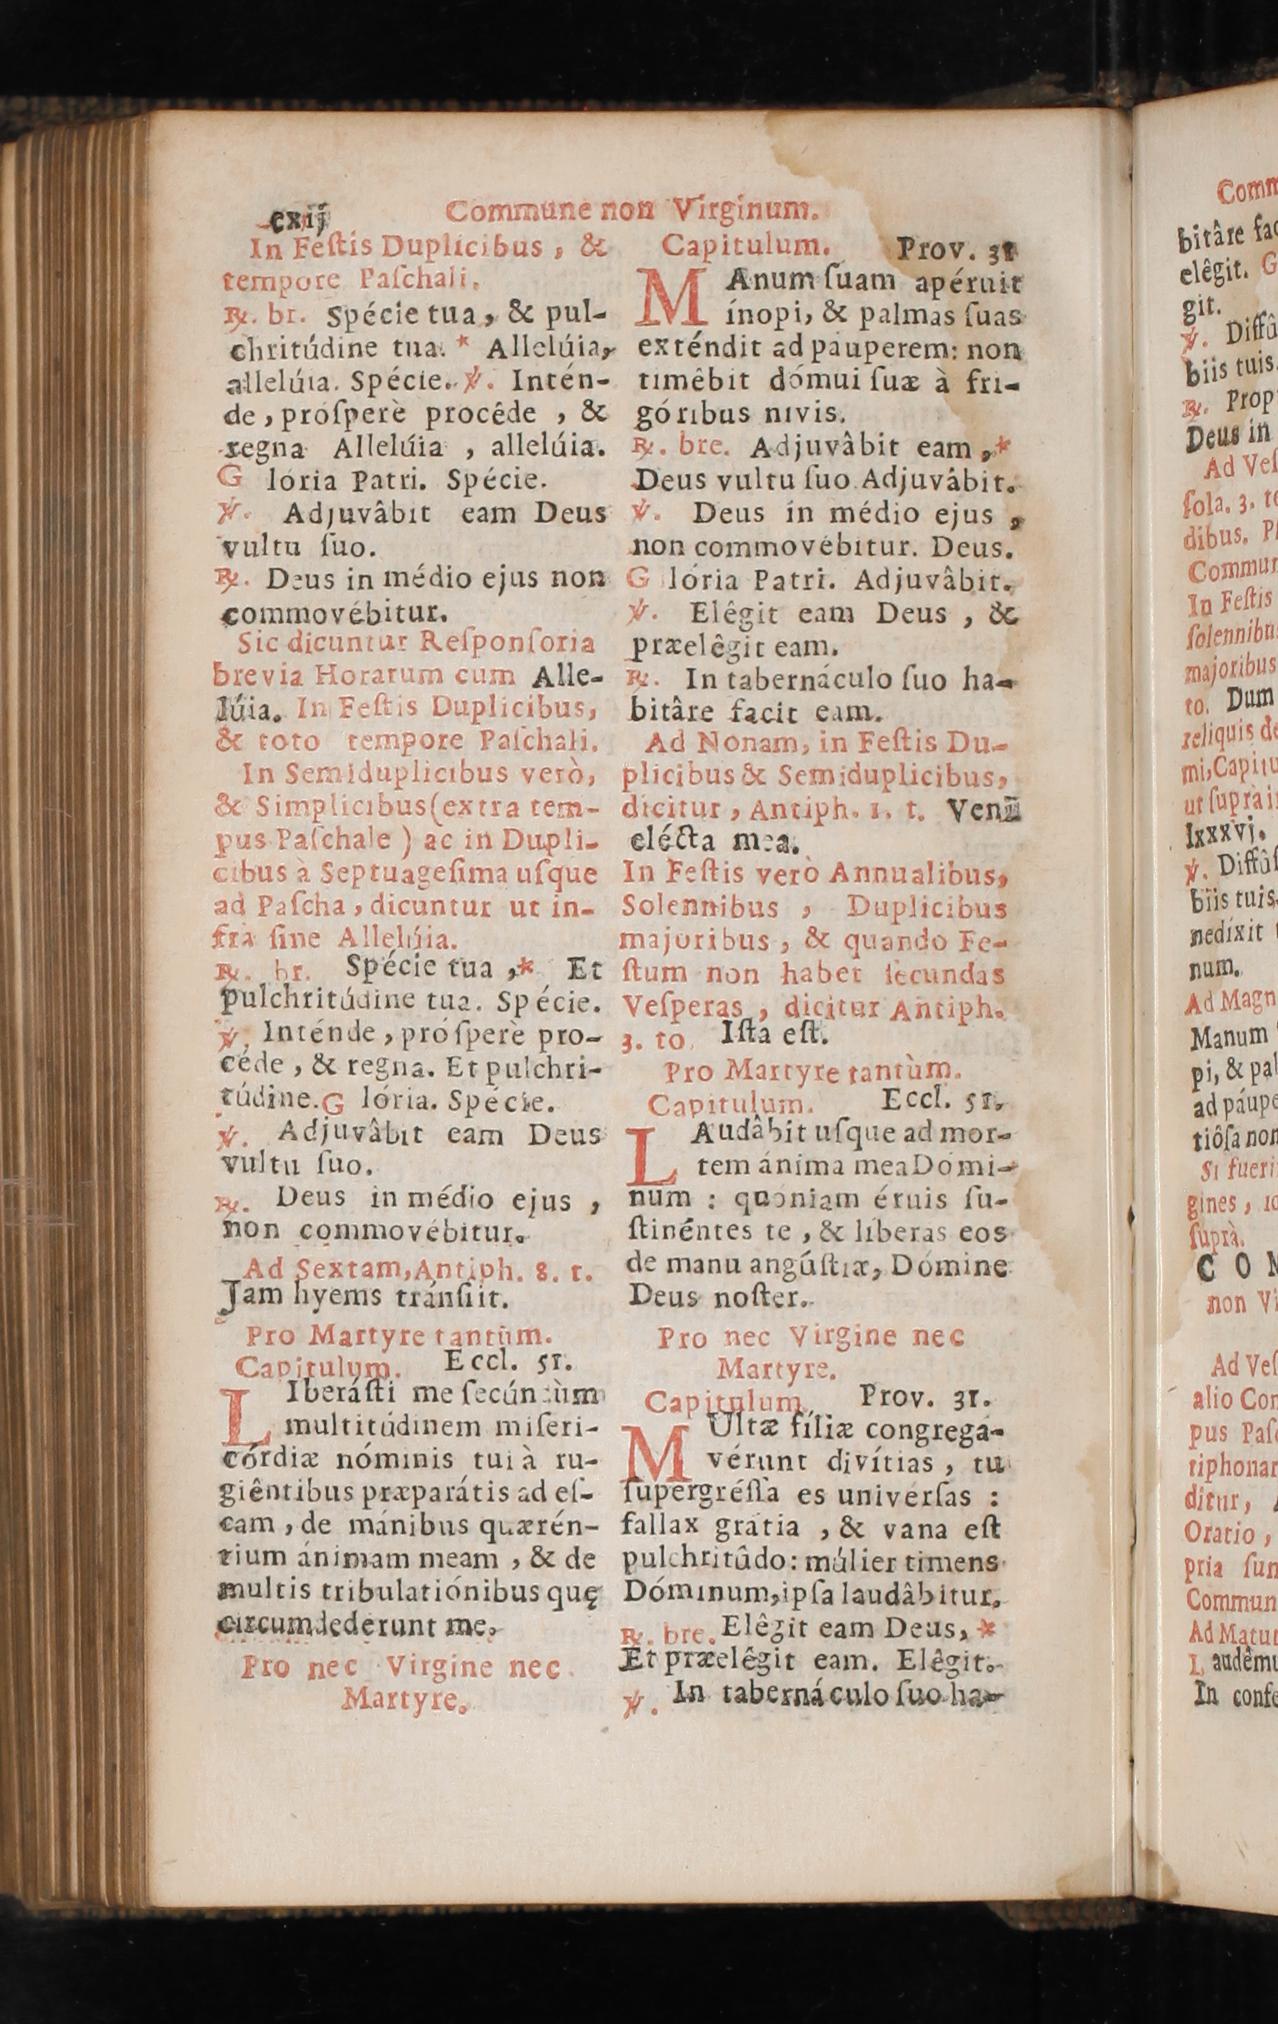 cxij
Commune non Virginum.
In Feſtis Duplicibus, &
tempore Paſchali.
℟. br. Spécie tua, & pul-
chritúdine tua. * Allelúia,
allelúia. Spécie. ℣. Intén-
de, proſperè procéde, &
regna Allelúia, allelúia.
Glória Patri. Spécie.
℣. Adjuvâbit eam Deus
vultu ſuo.
℟. Deus in médio ejus non
commovébitur.
Sic dicuntur Reſponſoria
brevia Horarum cum Alle-
lúia. In Feſtis Duplicibus,
& toto tempore Paſchali.
In Semiduplicibus verò,
& Simplicibus (extra tem-
pus Paſchale) ac in Dupli-
cibus à Septuageſima uſque
ad Paſcha, dicuntur ut in-
frà ſine Allelúia.
℟. br. Spécie tua,* Et
pulchritúdine tua. Spécie.
℣. Inténde, próſperè pro-
céde, & regna. Et pulchri-
túdine. Glória. Spécie.
℣. Adjuvâbit eam Deus
vultu ſuo.
℟. Deus in médio ejus,
non commovébitur.
Ad Sextam, Antiph. 8. t.
Jam hyems tránſiit.
Pro Martyre tantùm.
Capitulum. Eccl. 51.
LIberáſti me ſecúndùm
multitúdinem miſeri-
córdiæ nóminis tui à ru-
giêntibus præparátis ad eſ-
cam, de mánibus quærén-
tium ánimam meam, & de
multis tribulatiónibus quę
circumdederunt me.
Pro nec Virgine nec
Martyre.
Capitulum. Prov. 31
MAnum ſuam apéruit
ínopi, & palmas ſuas
exténdit ad pauperem: non
timêbit dómui ſuæ à fri-
góribus nivis.
℟. bre. Adjuvâbit eam,*
Deus vultu ſuo. Adjuvâbit.
℣. Deus in médio ejus,
non commovébitur. Deus.
Glória Patri. Adjuvâbit.
℣. Elêgit eam Deus, &
præelêgit eam.
℟. In tabernáculo ſuo ha-
bitâre facit eam.
Ad Nonam, in Feſtis Du-
plicibus & Semiduplicibus,
dicitur, Antiph. 1. t. Veni
elécta mea.
In Feſtis verò Annualibus,
Solennibus, Duplicibus
majoribus, & quando Fe-
ſtum non habet ſecundas
Veſperas, dicitur Antiph.
3. to. Iſta eſt.
Pro Martyre tantùm.
Capitulum. Eccl. 51.
LAudâbit uſque ad mor-
tem ánima mea Domi-
num: quoniam éruis ſu-
ſtinéntes te, & liberas eos
de manu angúſtiæ, Dómine
Deus noſter.
Pro nec Virgine nec
Martyre.
Capitulum. Prov. 31.
MUltæ fíliæ congrega-
vérunt divítias, tu
ſupergréſſa es univerſas:
fallax gratia, & vana eſt
pulchritûdo: múlier timens
Dóminum, ipſa laudâbitur.
℟. bre. Elêgit eam Deus, *
Et præelêgit eam. Elêgit.
℣. In tabernáculo ſuo ha-
bitâre
elêgit. G
git.
℣. Diffû
biis tuis.
℟. Prop
Deus in
Ad Veſ
ſola. 3. to
dibus.
Commun
In Feſtis
ſolennibu
majoribus
to. Dum
reliquis de
mi, Capitu
ut ſupra i
lxxxvj.
℣. Diffûſ
biis tuis.
nedíxit
num.
Ad Magn
Manum
pi, & pal
ad páupe
tiôſa non
Si fueri
gines,
ſuprà.
COM
non Vi
Ad Veſ
alio Com
pus Paſ
tiphonar
ditur,
Oratio,
pria ſun
Commun
Ad Matut
audêmu
In confe